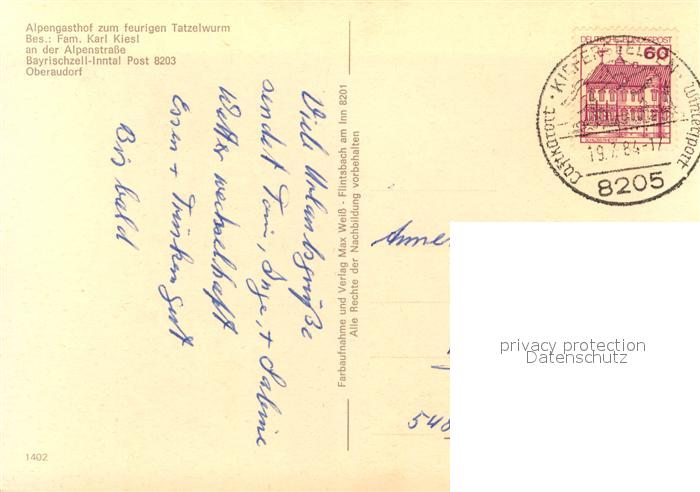 Alpengasthof zum feurigen Tatzelwurm
Bes.: Fam. Karl Kiesl
an der Alpenstraße
Bayrischzell-Inntal Post 8203
Oberaudorf
Viele Urlaubsgrüße
sendet Toni, Inge, + Sabine
Wetter wechselhaft
Essen + Trinken gut
Bis bald
Farbaufnahme und Verlag Max Weiß - Flintsbach am Inn 8201
Alle Rechte der Nachbildung vorbehalten
DEUTSCHE BUNDESPOST
60
KIEFERSFELDEN
Luftkurort · Wintersport
19.7.84-17
8205
privacy protection
Datenschutz
540
1402